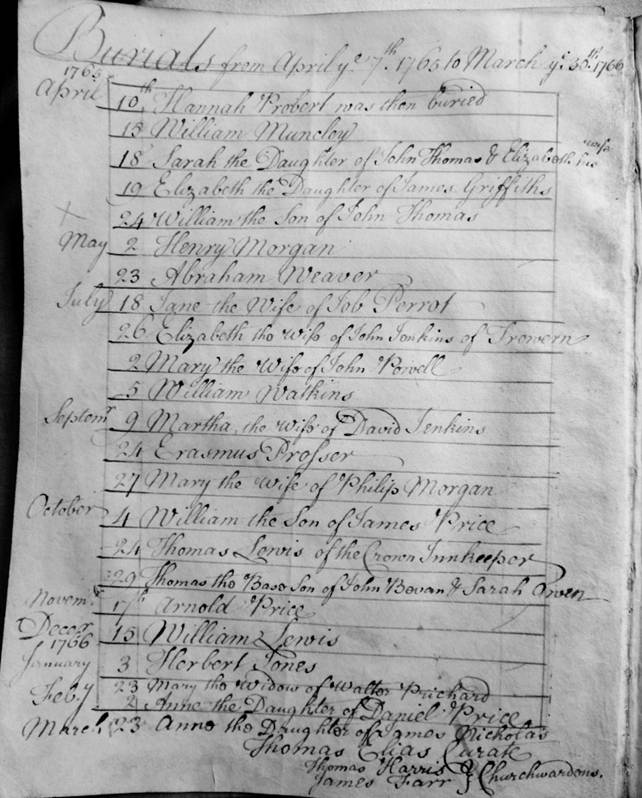 Burials from April ye 7th 1765 to March ye 30th 1766
1765
April 10th Hannah Probert was then buried
15 William Muncley
18 Sarah the Daughter of John Thomas & Elizabeth his wife
19 Elizabeth the Daughter of James Griffiths
24 William the Son of John Thomas
May 2 Henry Morgan
23 Abraham Weaver
July 18 Jane the Wife of Job Perrot
26 Elizabeth the Wife of John Jenkins of Trowern
2 Mary the Wife of John Powell
5 William Watkins
Septemr 9 Martha the Wife of David Jenkins
24 Erasmus Prosser
27 Mary the Wife of Philip Morgan
October 4 William the Son of James Price
24 Thomas Lewis of the Crown Innkeeper
29 Thomas the Base Son of John Bevan & Sarah Owen
Novemr 17th Arnold Price
Decer 15 William Lewis
1766
January 3 Herbert Jones
23 Mary the Widow of Walter Prichard
Feb.y 2 Anne the Daughter of Daniel Price
March 23 Anne the Daughter of James Nicholas
Thomas Elias Curate
Thomas Harris
James Farr } Churchwardens.